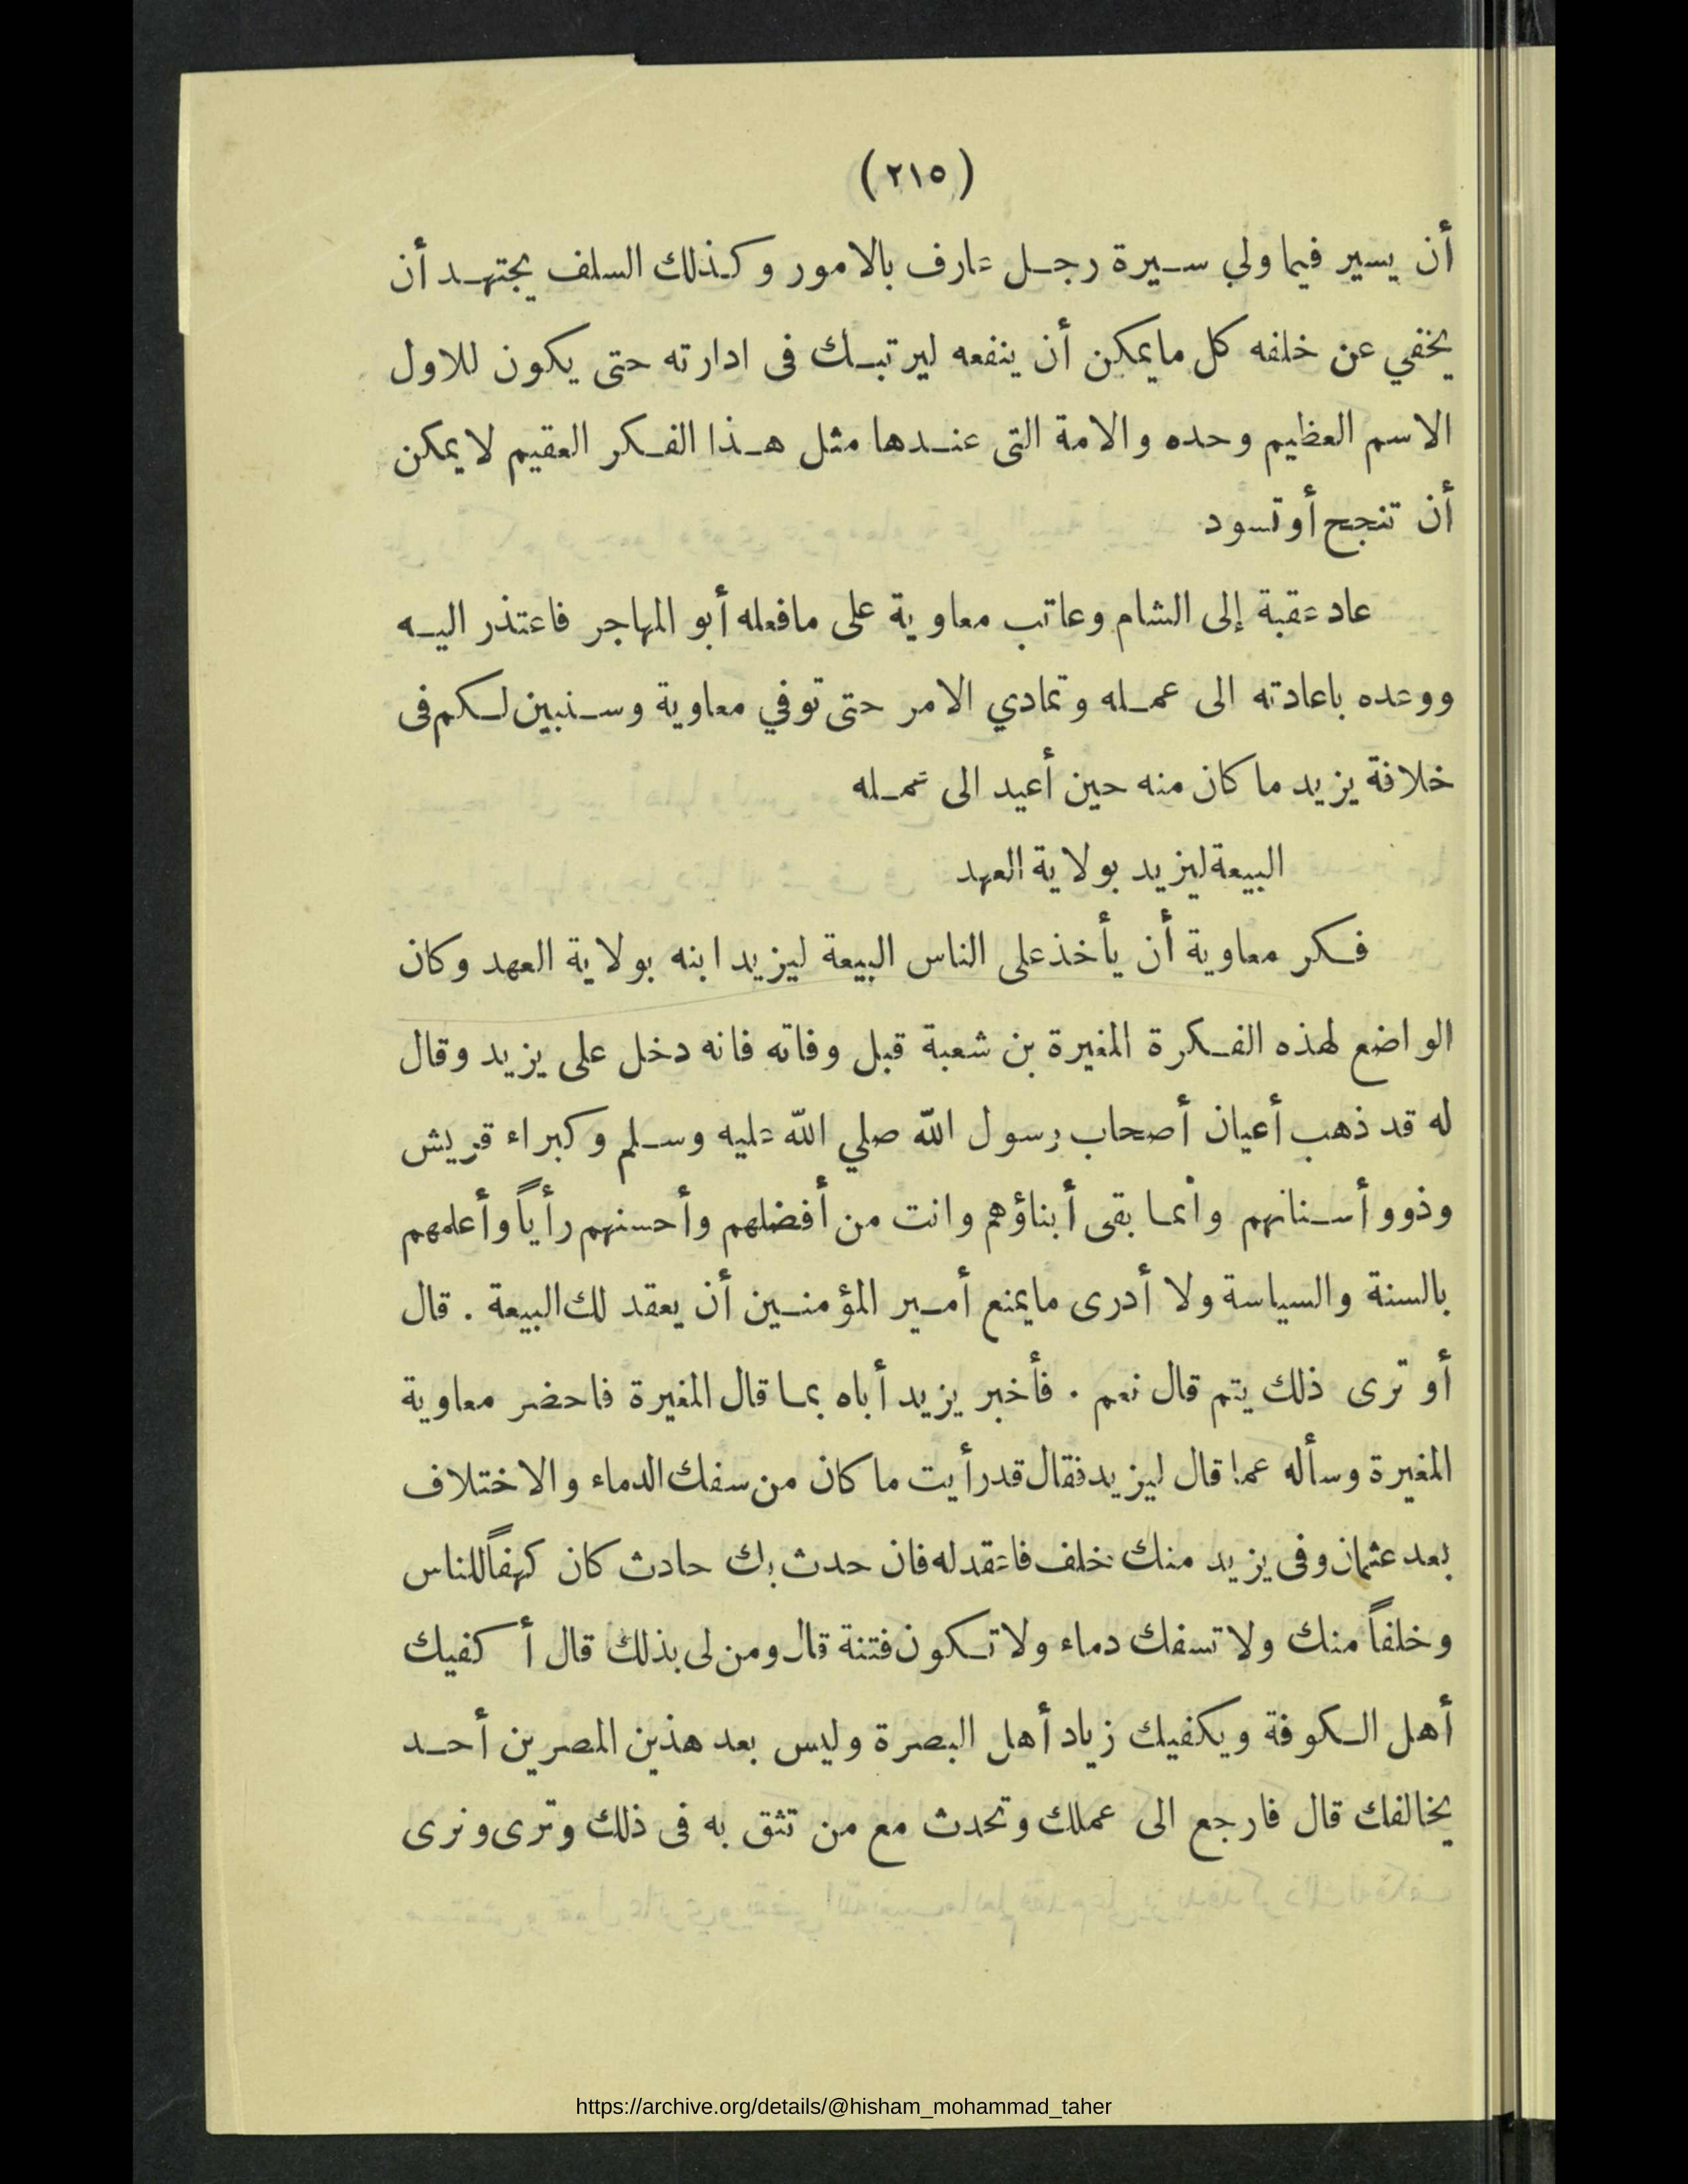 (٢١٥)
أن يسير فيما ولي سيرة رجل عارف بالامور وكذلك السلف يجتهد أن
يخفي عن خلفه كل مايمكن أن ينفعه ليرتبك فى ادارته حتى يكون للاول
الاسم العظيم وحده والامة التى عندها مثل هذا الفكر العقيم لايمكن
أن تنجح أوتسود
عاد عقبة إلى الشام وعاتب معاوية على مافعله أبو المهاجر فاعتذر اليه
ووعده باعادته الى عمله وتمادي الامر حتى توفي معاوية وسنبين لكم فى
خلافة يزيد ما كان منه حين أعيد الى عمله
البيعة ليزيد بولاية العهد
فكر معاوية أن يأخذ على الناس البيعة ليزيد ابنه بولاية العهد وكان
الواضع لهذه الفكرة المغيرة بن شعبة قبل وفاته فانه دخل على يزيد وقال
له قد ذهب أعيان أصحاب رسول الله صلي الله عليه وسلم وكبراء قريش
وذوو أسنانهم وانما بقى أبناؤهم وانت من أفضلهم وأحسنهم رأياً وأعلمهم
بالسنة والسياسة ولا أدرى مايمنع أمير المؤمنين أن يعقد لك البيعة . قال
أو ترى ذلك يتم قال نعم . فأخبر يزيد أباه بما قال المغيرة فاحضر معاوية
المغيرة وسأله عما قال ليزيد فقال قد رأيت ما كان من سفك الدماء والاختلاف
بعد عثمان وفى يزيد منك خلف فاعقد له فان حدث بك حادث كان كهفاً للناس
وخلفاً منك ولا تسفك دماء ولا تكون فتنة قال ومن لى بذلك قال أكفيك
أهل الكوفة ويكفيك زياد أهل البصرة وليس بعد هذين المصرين أحد
يخالفك قال فارجع الى عملك وتحدث مع من تثق به فى ذلك وترى ونرى
https://archive.org/details/@hisham_mohammad_taher